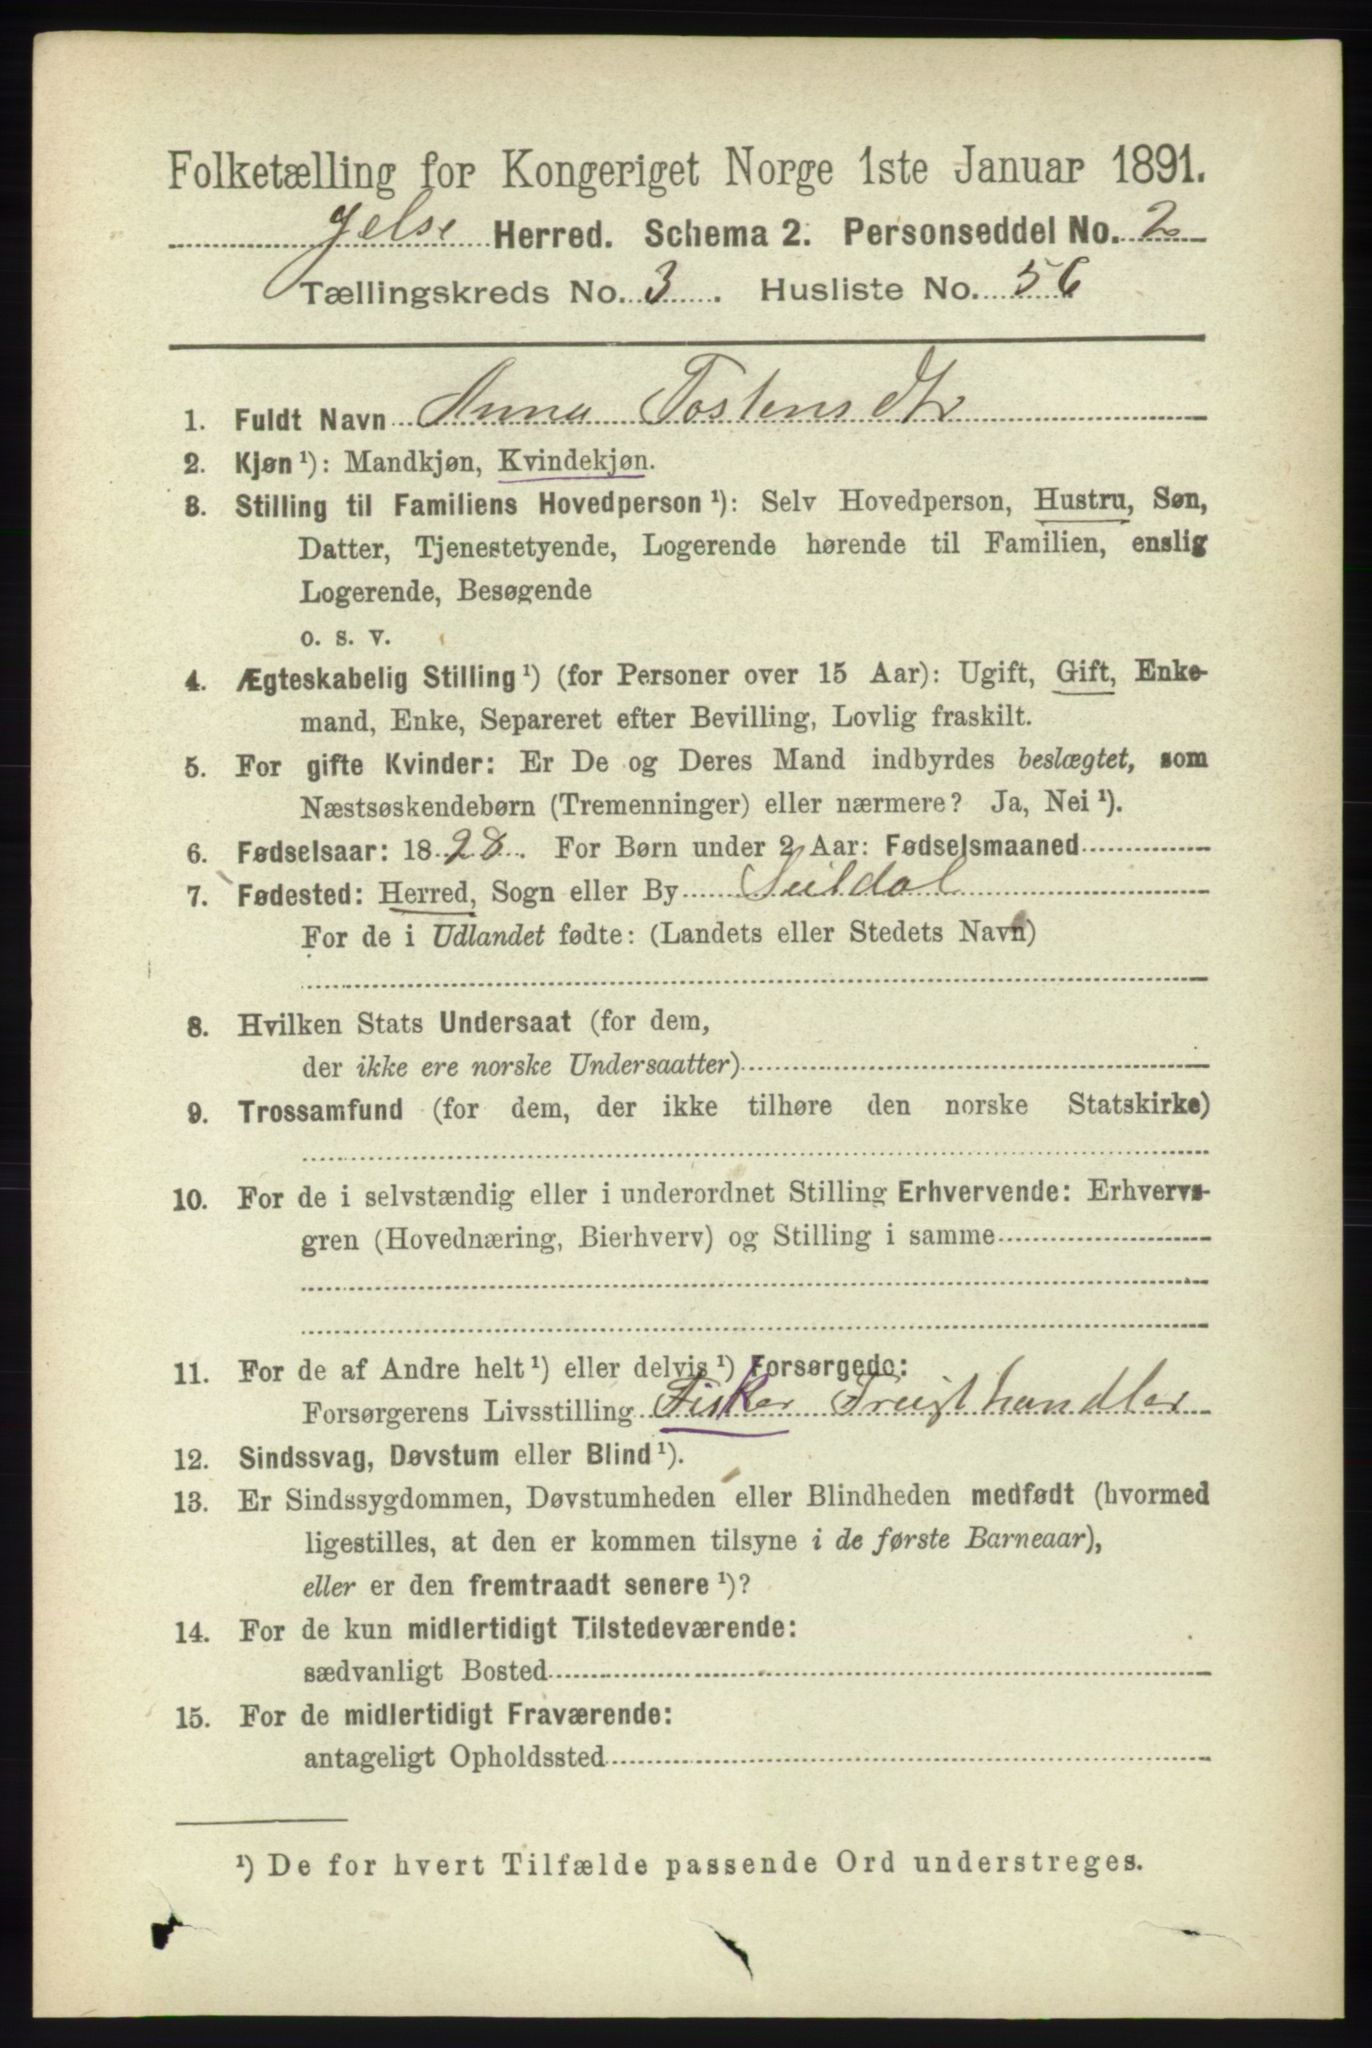 Folketælling for Kongeriget Norge 1ste Januar 1891.
Jelse Herred. Schema 2. Personseddel No. 2
Tællingskreds No. 3. Husliste No. 56
1. Fuldt Navn Anna Tostensdtr
2. Kjøn ¹): Mandkjøn, Kvindekjøn.
3. Stilling til Familiens Hovedperson ¹): Selv Hovedperson, Hustru, Søn,
Datter, Tjenestetyende, Logerende hørende til Familien, enslig
Logerende, Besøgende
o. s. v.
4. Ægteskabelig Stilling ¹) (for Personer over 15 Aar): Ugift, Gift, Enke-
mand, Enke, Separeret efter Bevilling, Lovlig fraskilt.
5. For gifte Kvinder: Er De og Deres Mand indbyrdes beslægtet, som
Næstsøskendebørn (Tremenninger) eller nærmere? Ja, Nei ¹).
6. Fødselsaar: 1828. For Børn under 2 Aar: Fødselsmaaned
7. Fødested: Herred, Sogn eller By Suldal
For de i Udlandet fødte: (Landets eller Stedets Navn)
8. Hvilken Stats Undersaat (for dem,
der ikke ere norske Undersaatter)
9. Trossamfund (for dem, der ikke tilhøre den norske Statskirke)
10. For de i selvstændig eller i underordnet Stilling Erhvervende: Erhvervs-
gren (Hovednæring, Bierhverv) og Stilling i samme
11. For de af Andre helt ¹) eller delvis ¹) Forsørgede:
Forsørgerens Livsstilling Fisker
12. Sindssvag, Døvstum eller Blind ¹).
13. Er Sindssygdommen, Døvstumheden eller Blindheden medfødt (hvormed
ligestilles, at den er kommen tilsyne i de første Barneaar),
eller er den fremtraadt senere ¹)?
14. For de kun midlertidigt Tilstedeværende:
sædvanligt Bosted
15. For de midlertidigt Fraværende:
antageligt Opholdssted
¹) De for hvert Tilfælde passende Ord understreges.